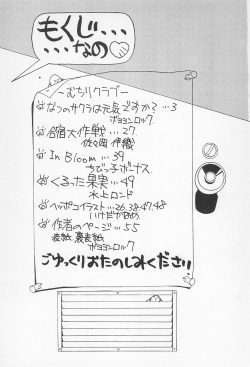 もくじ・・・
・・・なの
〜むちリクラブー
なつのサクラは元気ですか?…3
ポヨヨンロック
合宿大作戦…27
佐々岡
In Bloom…39
ちびっ子ボーナス
くるった果実…49
水上ロンド
ヘッポコイラスト…26.38.47.48
作者のページ…55
表紙 裏表紙
ポヨヨンロック
ごゆっくりおたのしみください!